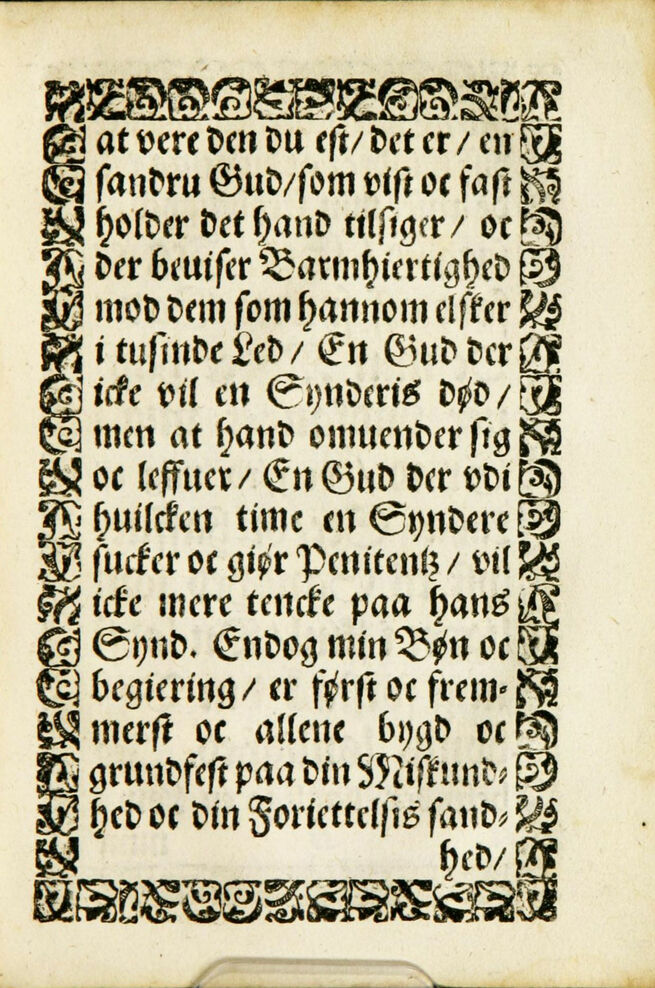 at vere den du est/ det er / en
sandru Gud/som vist oc fast
holder det hand tilsiger / oc
der beuiser Barmhiertighed
mod dem som hannom elsker
i tusinde Led / En Gud der
icke vil en Synderis død /
men at hand omuender sig
oc leffuer / En Gud der vdi
huilcken time en Syndere
sucker oc giør Penitentz / vil
icke mere tencke paa hans
Synd. Endog min Bøn oc
begiering / er først oc frem-
merst oc allene bygd oc
grundfest paa din Miskund-
hed oc din Foriettelsis sand-
hed/